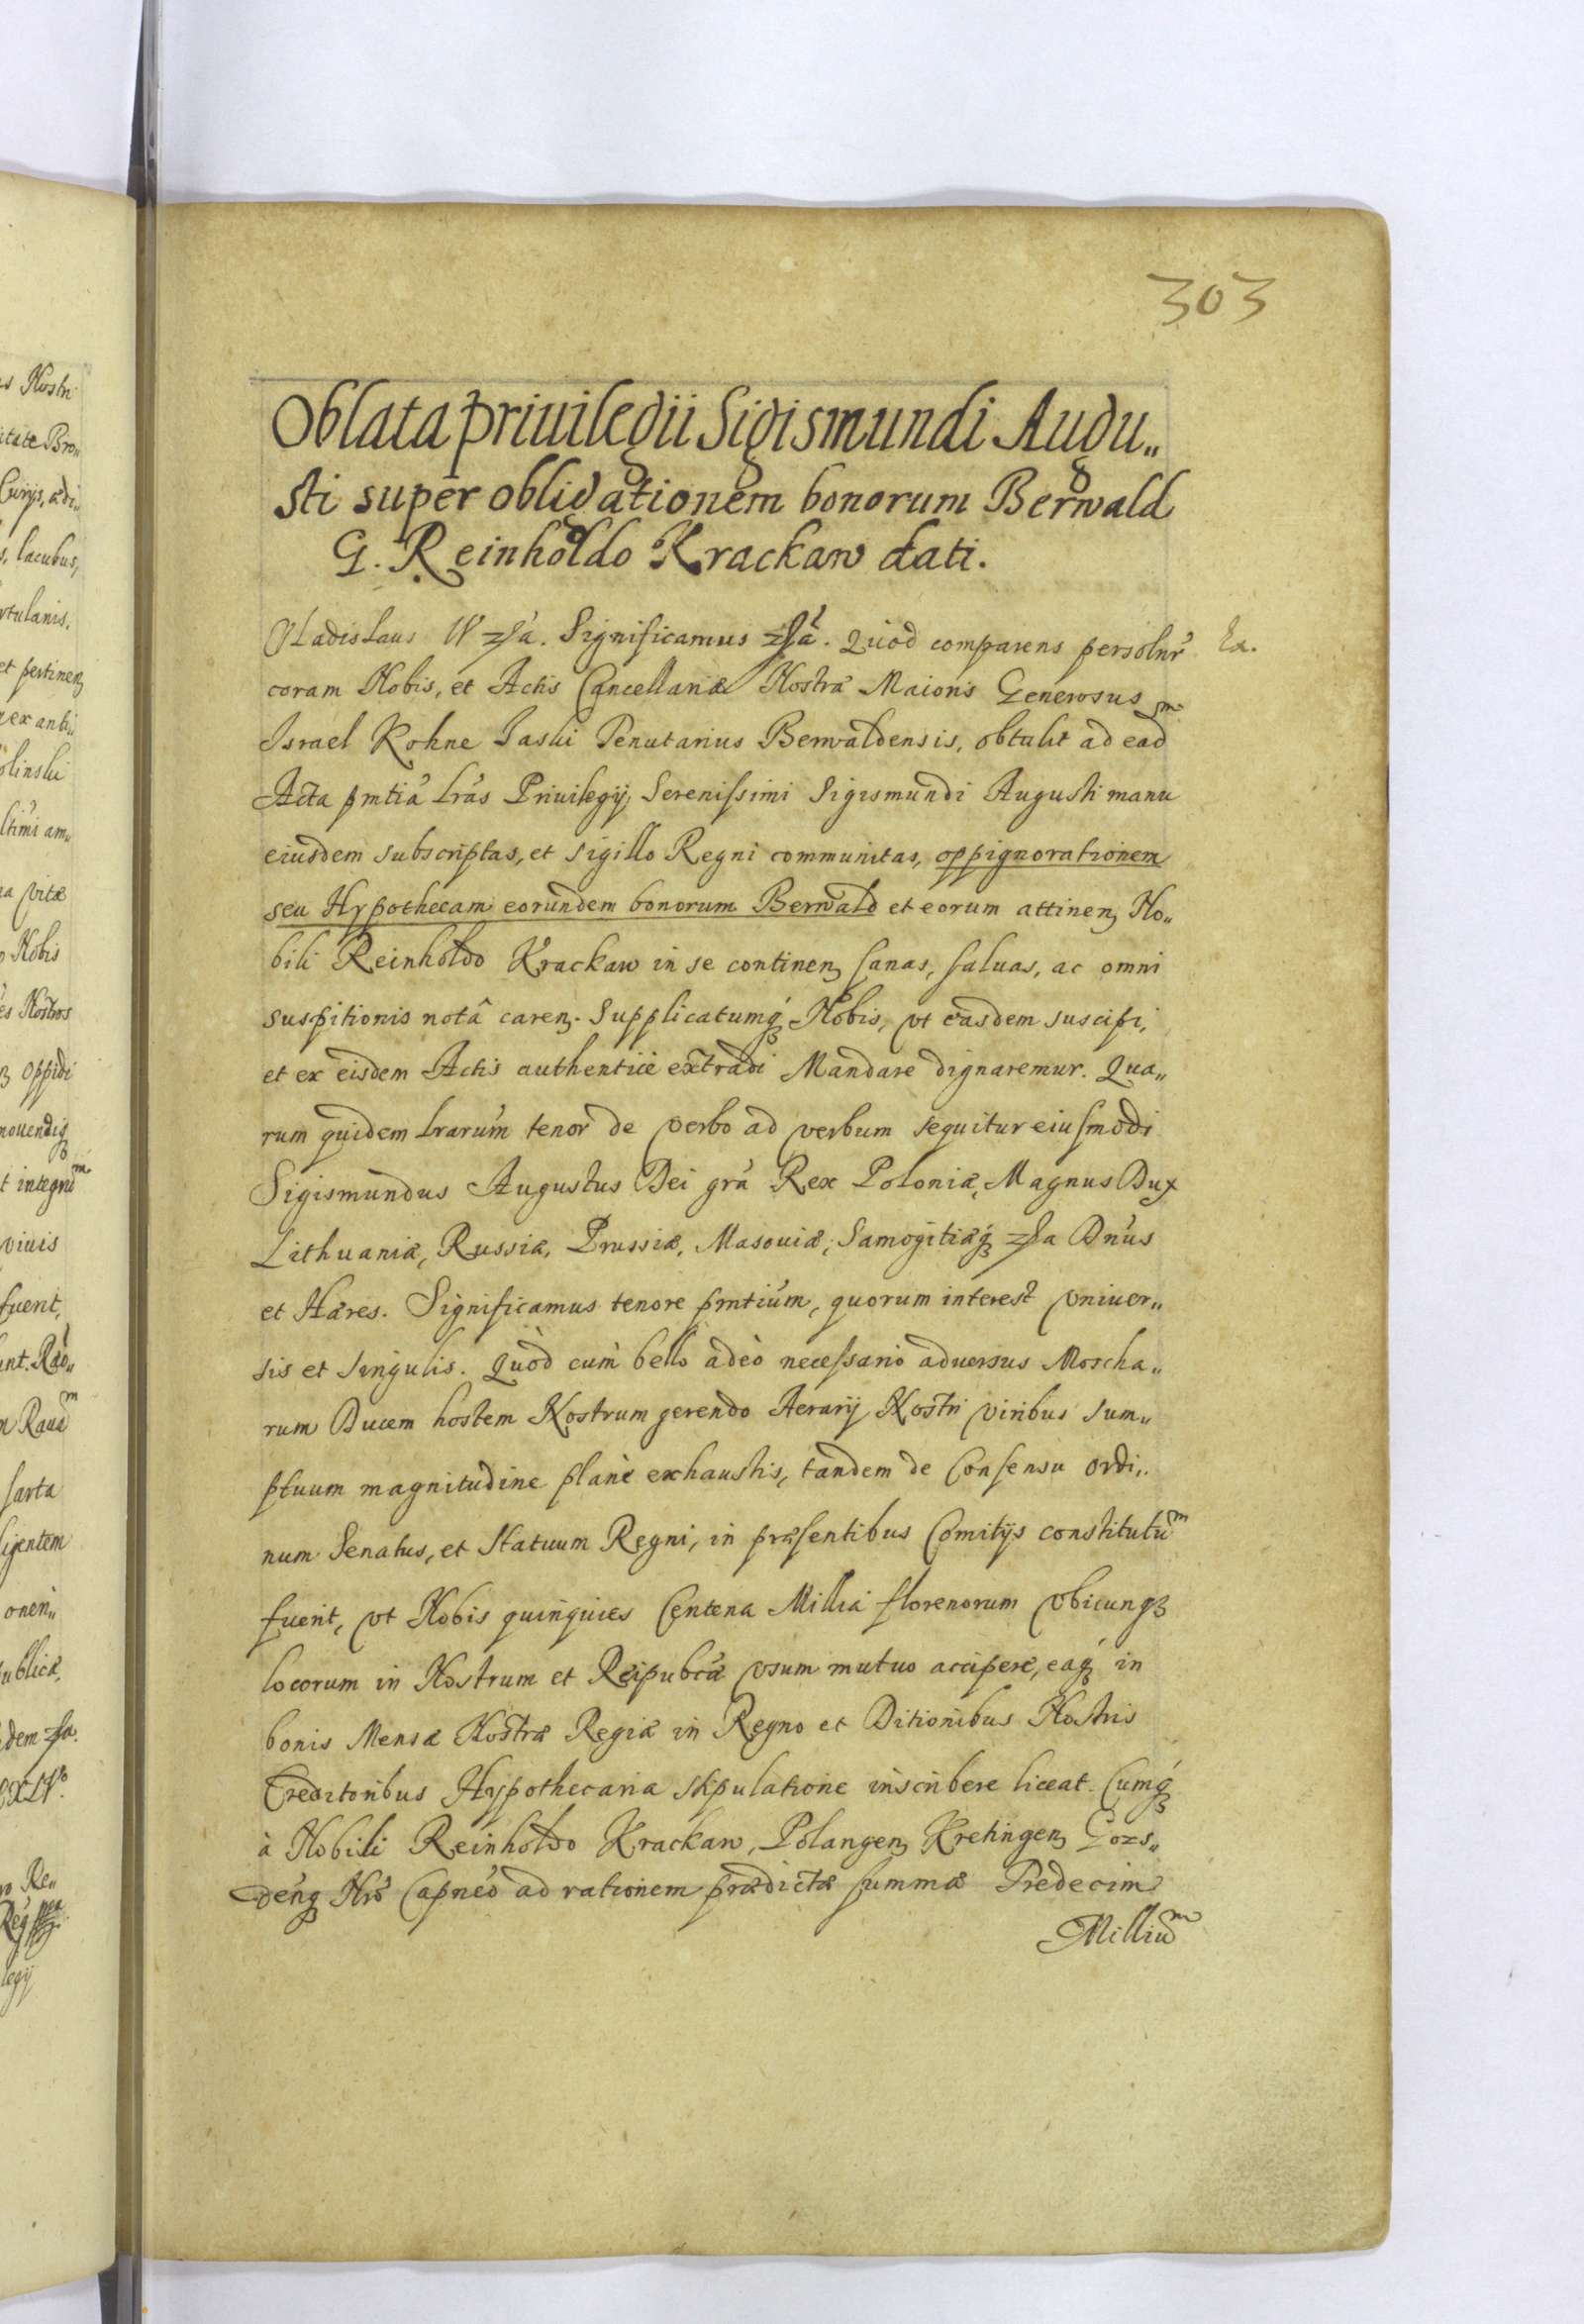 303
Oblata priuilegii Sigismundi Augu„
sti super obligationem bonorum Berwald
G. Reinholdo Krackaw dati.
Vladislaus IV Significamus Quod comparens persolnr̃ Ex.
coram Nobis, et Actis Cancellariæ Nostræ Maioris Generosus
Israel Kohne Jaski Tenutarius Berwaldensis, obtulit ad ead̃m
Acta pm̃tia lr̃as Priuilegij Serenissimi Sigismundi Augusti manu
eiusdem subscriptas, et sigillo Regni communitas, oppignorationem
seu Hypothecam eorundem bonorum Berwald et eorum attinenꝫ No„
bili Reinholdo Krackaw in se continenꝫ sanas, saluas, ac omni
suspitionis notâ carenꝫ. Supplicatumqꝫ Nobis, vt easdem suscipi,
et ex eisdem Actis authenticè extradi Mandare dignaremur. Qua„
rum quidem lrarum tenor de verbo ad verbum sequitur eiusmodi
Sigismundus Augustus Dei gr̃a Rex Poloniæ, Magnus Dux
Lithuaniæ, Russiæ, Prussiæ, Masouiæ, Samogitiæqꝫ Dn̄us
et Hæres. Significamus tenore pm̃tium, quorum interest vniuer„
sis et singulis. Quòd cum bello adeò necessario aduersus Moscha„
rum Ducem hostem Nostrum gerendo Aerarij Nostri viribus sum„
ptuum magnitudine planè exhaustis, tandem de Consensu ordi„
num Senatus, et Statuum Regni, in præsentibus Comitijs constitutũm
fuerit, vt Nobis quinquies Centena Millia florenorum vbicunqꝫ
locorum in Nostrum et Reipubcæ vsum mutuo accipere, eaqꝫ in
bonis Mensæ Nostræ Regiæ in Regno et Ditionibus Nostris
Creditoribus Hypothecaria stipulatione inscribere liceat. Cumqꝫ
à Nobili Reinholdo Krackaw, Polangenꝫ Kretingenꝫ Gors„
denqꝫ Nr̃o Capn̄eo ad rationem prædictæ summæ Tredecim
Milliũm